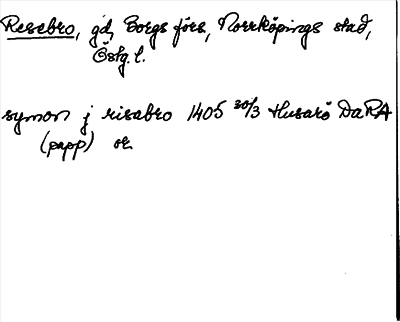 Risebro, gd, Borgs förs, Norrköpings stad,
Östg. l.
symon j risabro 1405 30/3 Husarö DaRA
(papp) or